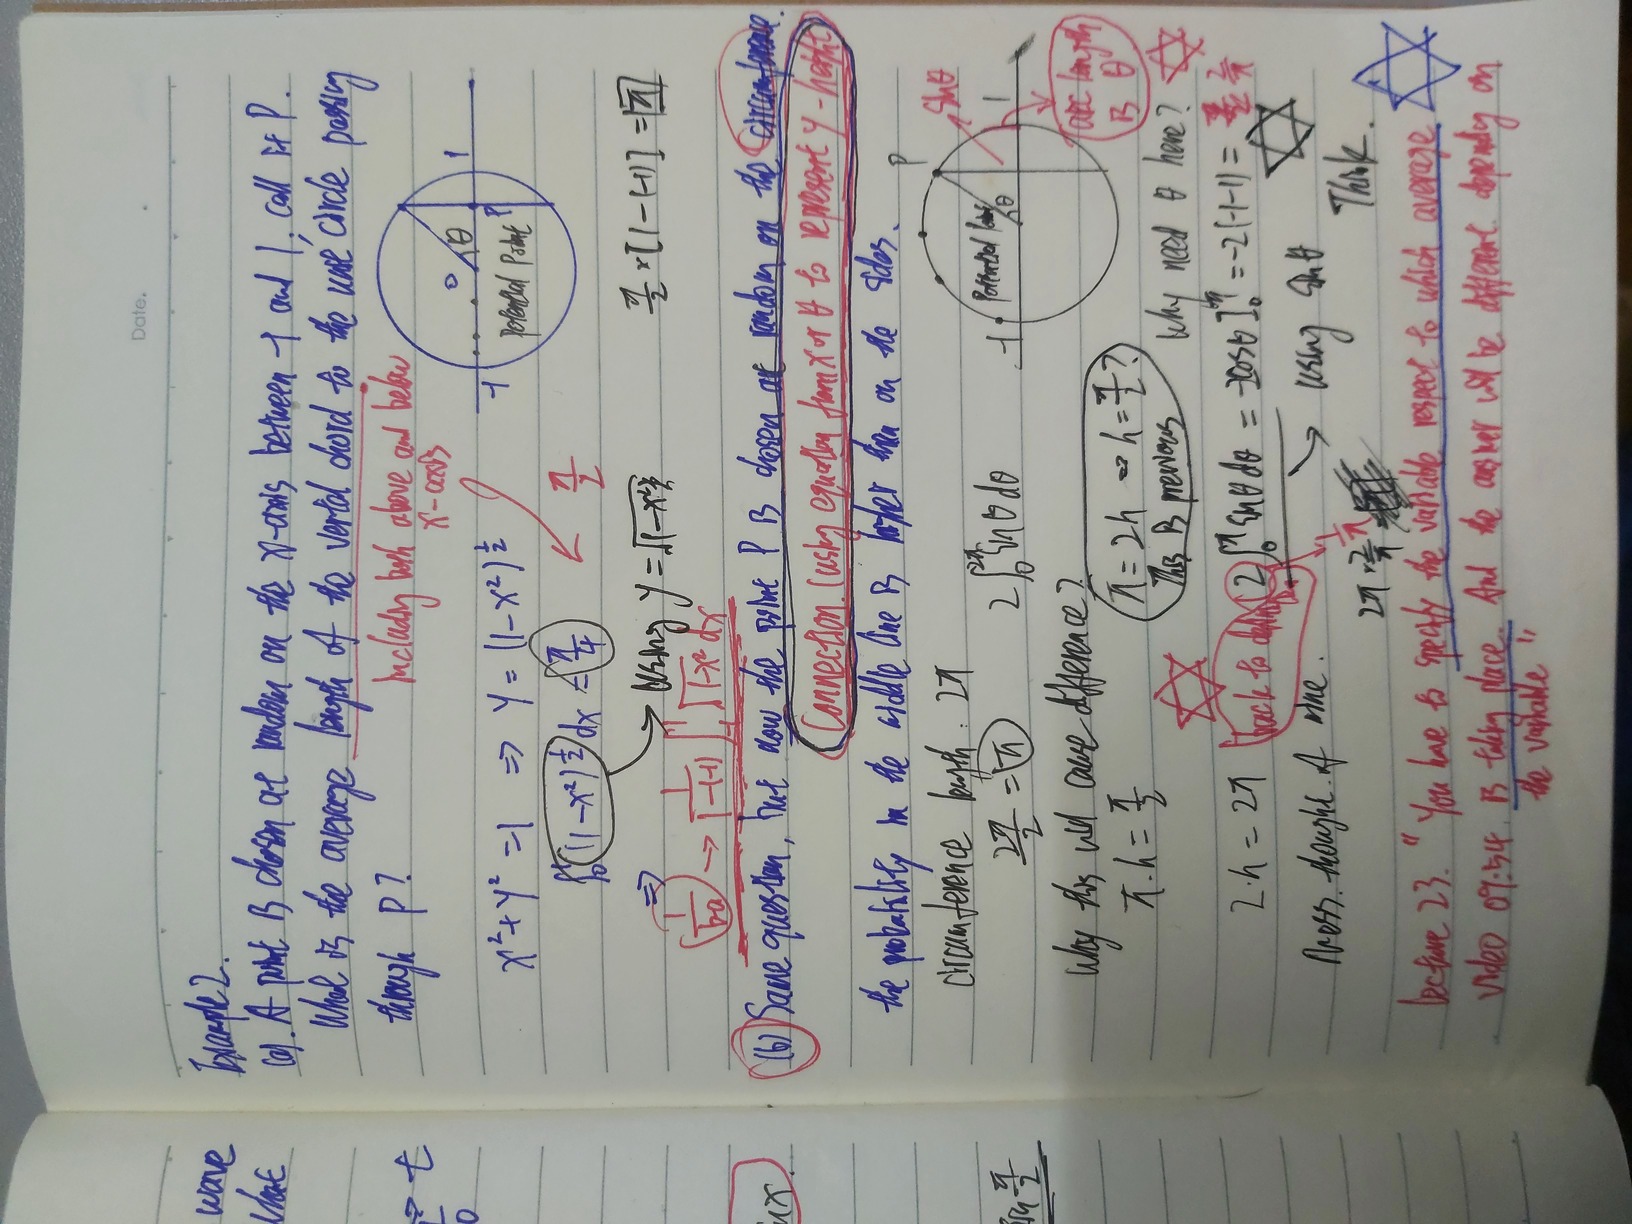 Date.
wave
what
Example 2.
(a). A point is chosen at random on the x-axis between -1 and 1, call it P.
What is the average length of the vertial chord to the unit circle passing
through P?
Including both above and below
x-axis
→ t
0
0 θ 1
-1 P
Potential Point
x² + y² = 1 ⇒ y = (1-x²)^½
∫₀¹ (1-x²)^½ dx = π/4
π/2
⇒ using y = √(1-x²)
π/2 × [1-(-1)] = π
1/(b-a) → 1/(1-(-1)) ∫₋₁¹ √(1-x²) dx
(b) Same question, but now the point P is chosen at random on the circumference.
Connection. (using equation from x or θ to represent y-height
the probability in the middle line is higher then on the sides.
P
circumference length: 2π
sinθ
2π/2 = π
2∫₀^2π sinθ dθ
Potential Point
-1 θ 1
π/2
Why this will cause difference?
arc length
is θ
π·h = π/2
π = 2h ⇒ h = π/2?
This is previous
Why need θ here?
2·h = 2π
back to
2∫₀^π sinθdθ = -2cosθ]₀^π = -2(-1-1) = 2/π
Mess. thought. of mine.
using sinθ
1/π
2π · 2/π
Think.
Lecture 23. "You have to specify the variable respect to which average
video 09:54. is taking place. And the answer will be different. depending on
the variable"